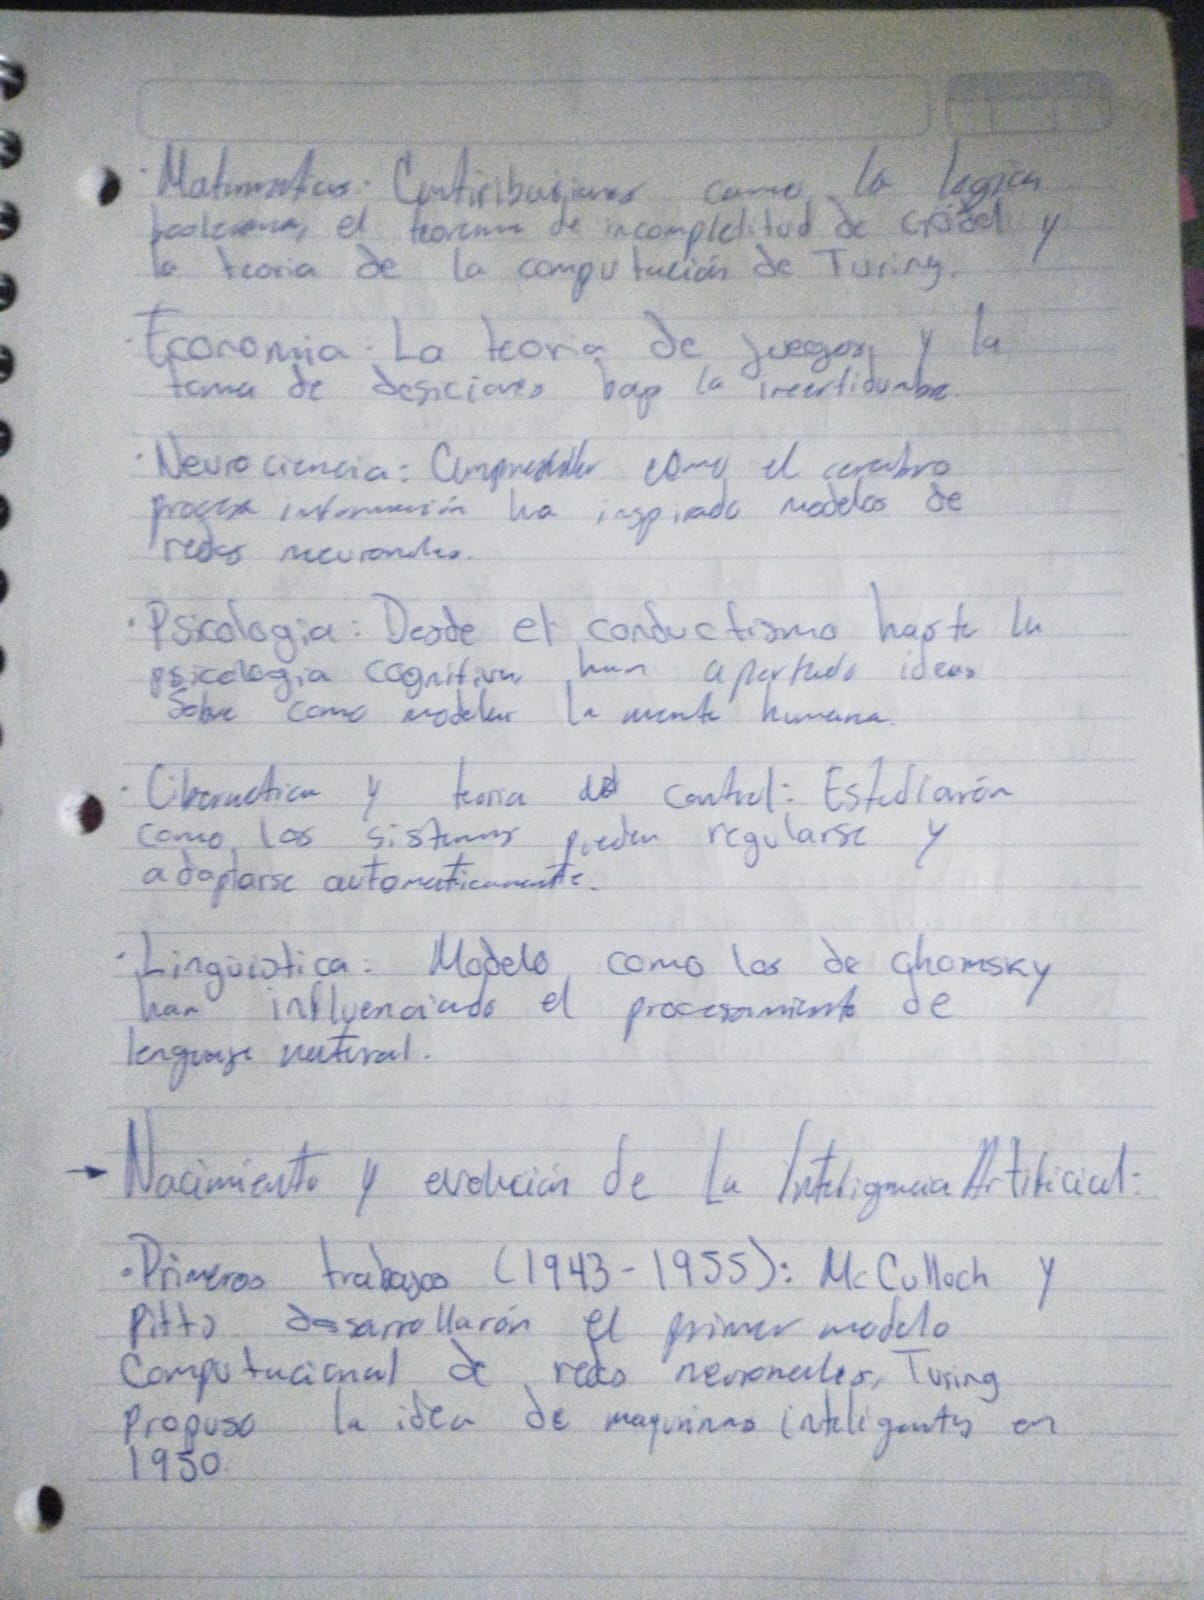 · Matematicas: Contiribuciones como la logica
booleana, el teorema de incompletitud de Gödel y
la teoria de la computación de Turing.
· Economia: La teoria de juegos y la
toma de desiciones bajo la incertidumbre.
· Neurociencia: Comprender como el cerebro
procesa información ha inspirado modelos de
redes neuronales.
· Psicologia: Desde el conductismo hasta la
psicologia cognitiva, han aportado ideas
sobre como modelar la mente humana.
· Cibernetica y teoria del control: Estudiarón
como los sistemas pueden regularse y
adaptarse automaticamente.
· Lingüistica: Modelo como los de Chomsky
han influenciado el procesamiento de
lenguaje natural.
→ Nacimiento y evolución de La Inteligencia Artificial:
· Primeros trabajos (1943-1955): McCulloch y
Pitts desarrollarón el primer modelo
Computacional de redes neuronales, Turing
propuso la idea de maquinas inteligentes en
1950.